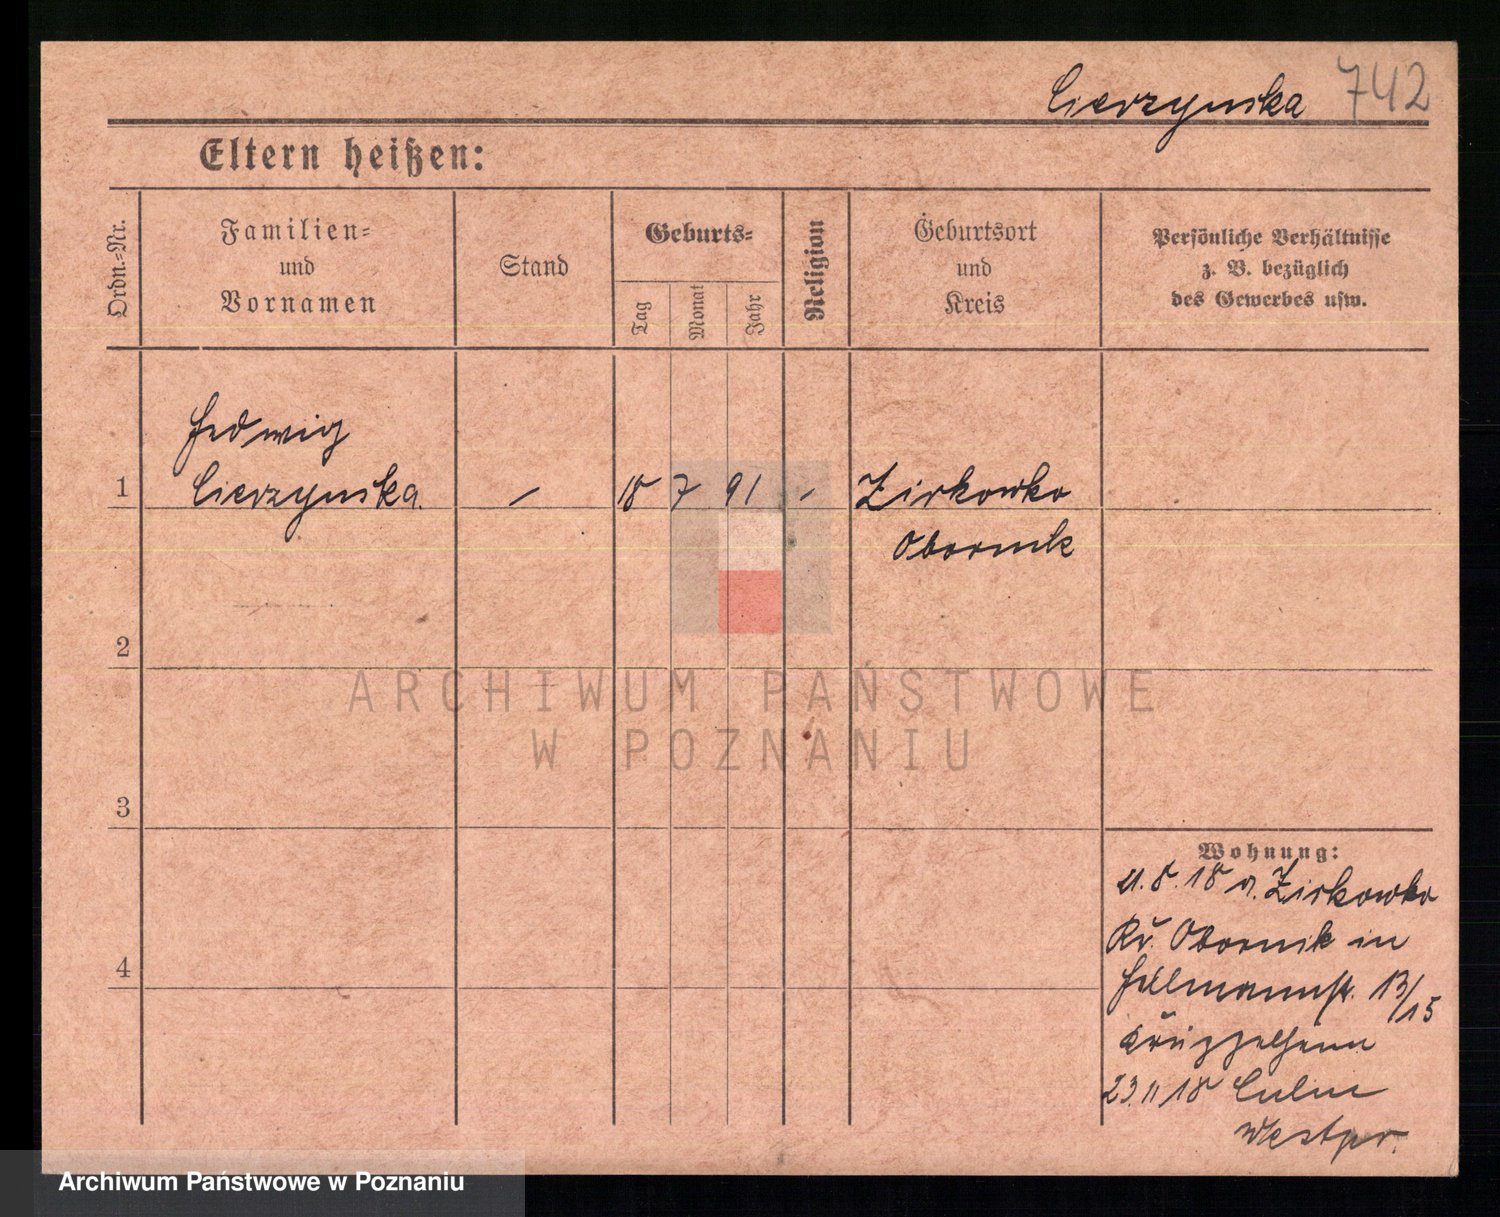 Cierzynska 742
Eltern heißen:
Ordn.-Nr.
Familien-
und
Vornamen
Stand
Geburts-
Tag
Monat
Jahr
Religion
Geburtsort
und
Kreis
Persönliche Verhältnisse
z. B. bezüglich
des Gewerbes usw.
Hedwig
1 Cierzynska. — 18 7 91 - Zirkowko
Obornik
2
ARCHIWUM PAŃSTWOWE
W POZNANIU
3
Wohnung:
8. 18 v. Zirkowko
Kr. Obornik in
13/15
4
23.11 18 Culm
Westpr.
Archiwum Państwowe w Poznaniu